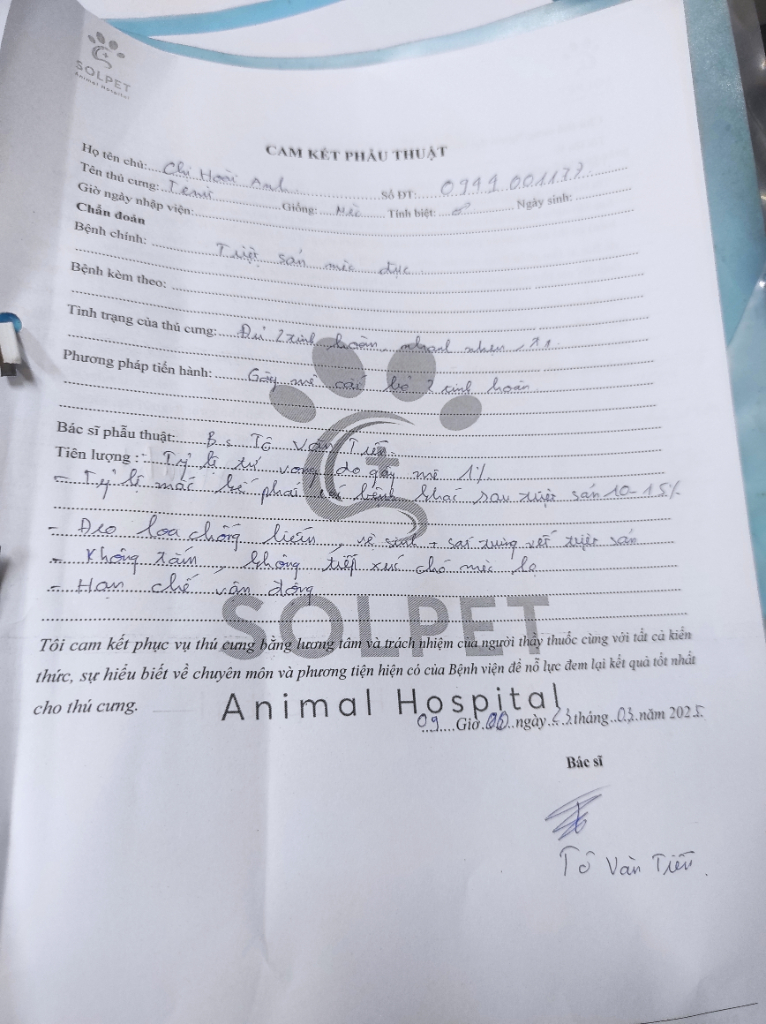 SOLPET
Animal Hospital
CAM KẾT PHẪU THUẬT
Họ tên chủ: Chị Hoài Anh Số ĐT: 0999 001177
Tên thú cưng: Giống: Mèo Tính biệt: ♂ Ngày sinh:
Giờ ngày nhập viện:
Chẩn đoán
Bệnh chính: Triệt sản mèo đực
Bệnh kèm theo:
Tình trạng của thú cưng: Đủ 2 tinh hoàn, nhanh nhẹn,
Phương pháp tiến hành: Gây mê cắt bỏ 2 tinh hoàn
Bác sĩ phẫu thuật: B.s Tô Văn Tiến
Tiên lượng : Tỷ lệ tử vong do gây mê 1%
- Tỷ lệ mắc bệnh khác sau triệt sản 10-15%
- Đeo loa chống liếm, vệ sinh + sát trùng vết triệt sản
- Không tắm, không tiếp xúc chó mèo lạ
- Hạn chế vận động
SOLPET
Tôi cam kết phục vụ thú cưng bằng lương tâm và trách nhiệm của người thầy thuốc cùng với tất cả kiến
thức, sự hiểu biết về chuyên môn và phương tiện hiện có của Bệnh viện để nỗ lực đem lại kết quả tốt nhất
cho thú cưng.
Animal Hospital
09 Giờ 00 ngày 23 tháng 03 năm 2025
Bác sĩ
Tô Văn Tiến